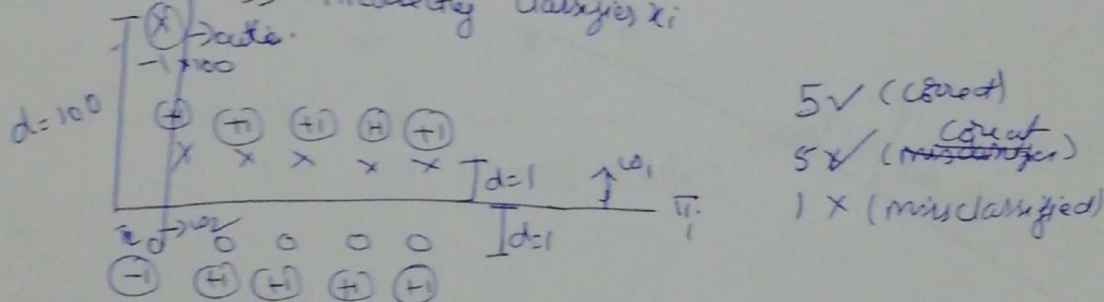 classifies xi
(x) →
-1 × 100
d=100
(+) (+1) (+1) (+) (+1)
x x x x x
d=1
w1
π1
d=1
o o o o
(-1) (+1) (+1) (+1) (+1)
5✓ (correct)
5✓ (correct)
1 × (misclassified)